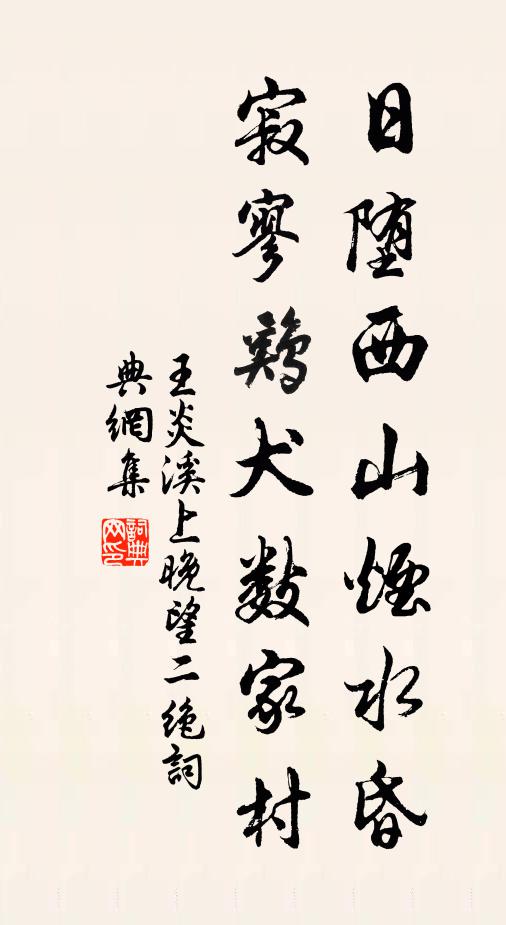 日堕西山煙水昏
寂寥鶏犬數家村
王炎溪上晚望二絶詞
典網集
詞典
网印